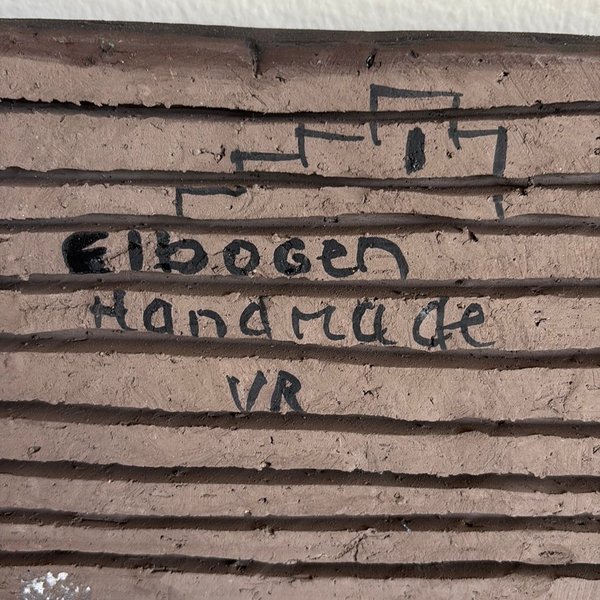 Elbogen
Handmade
VR